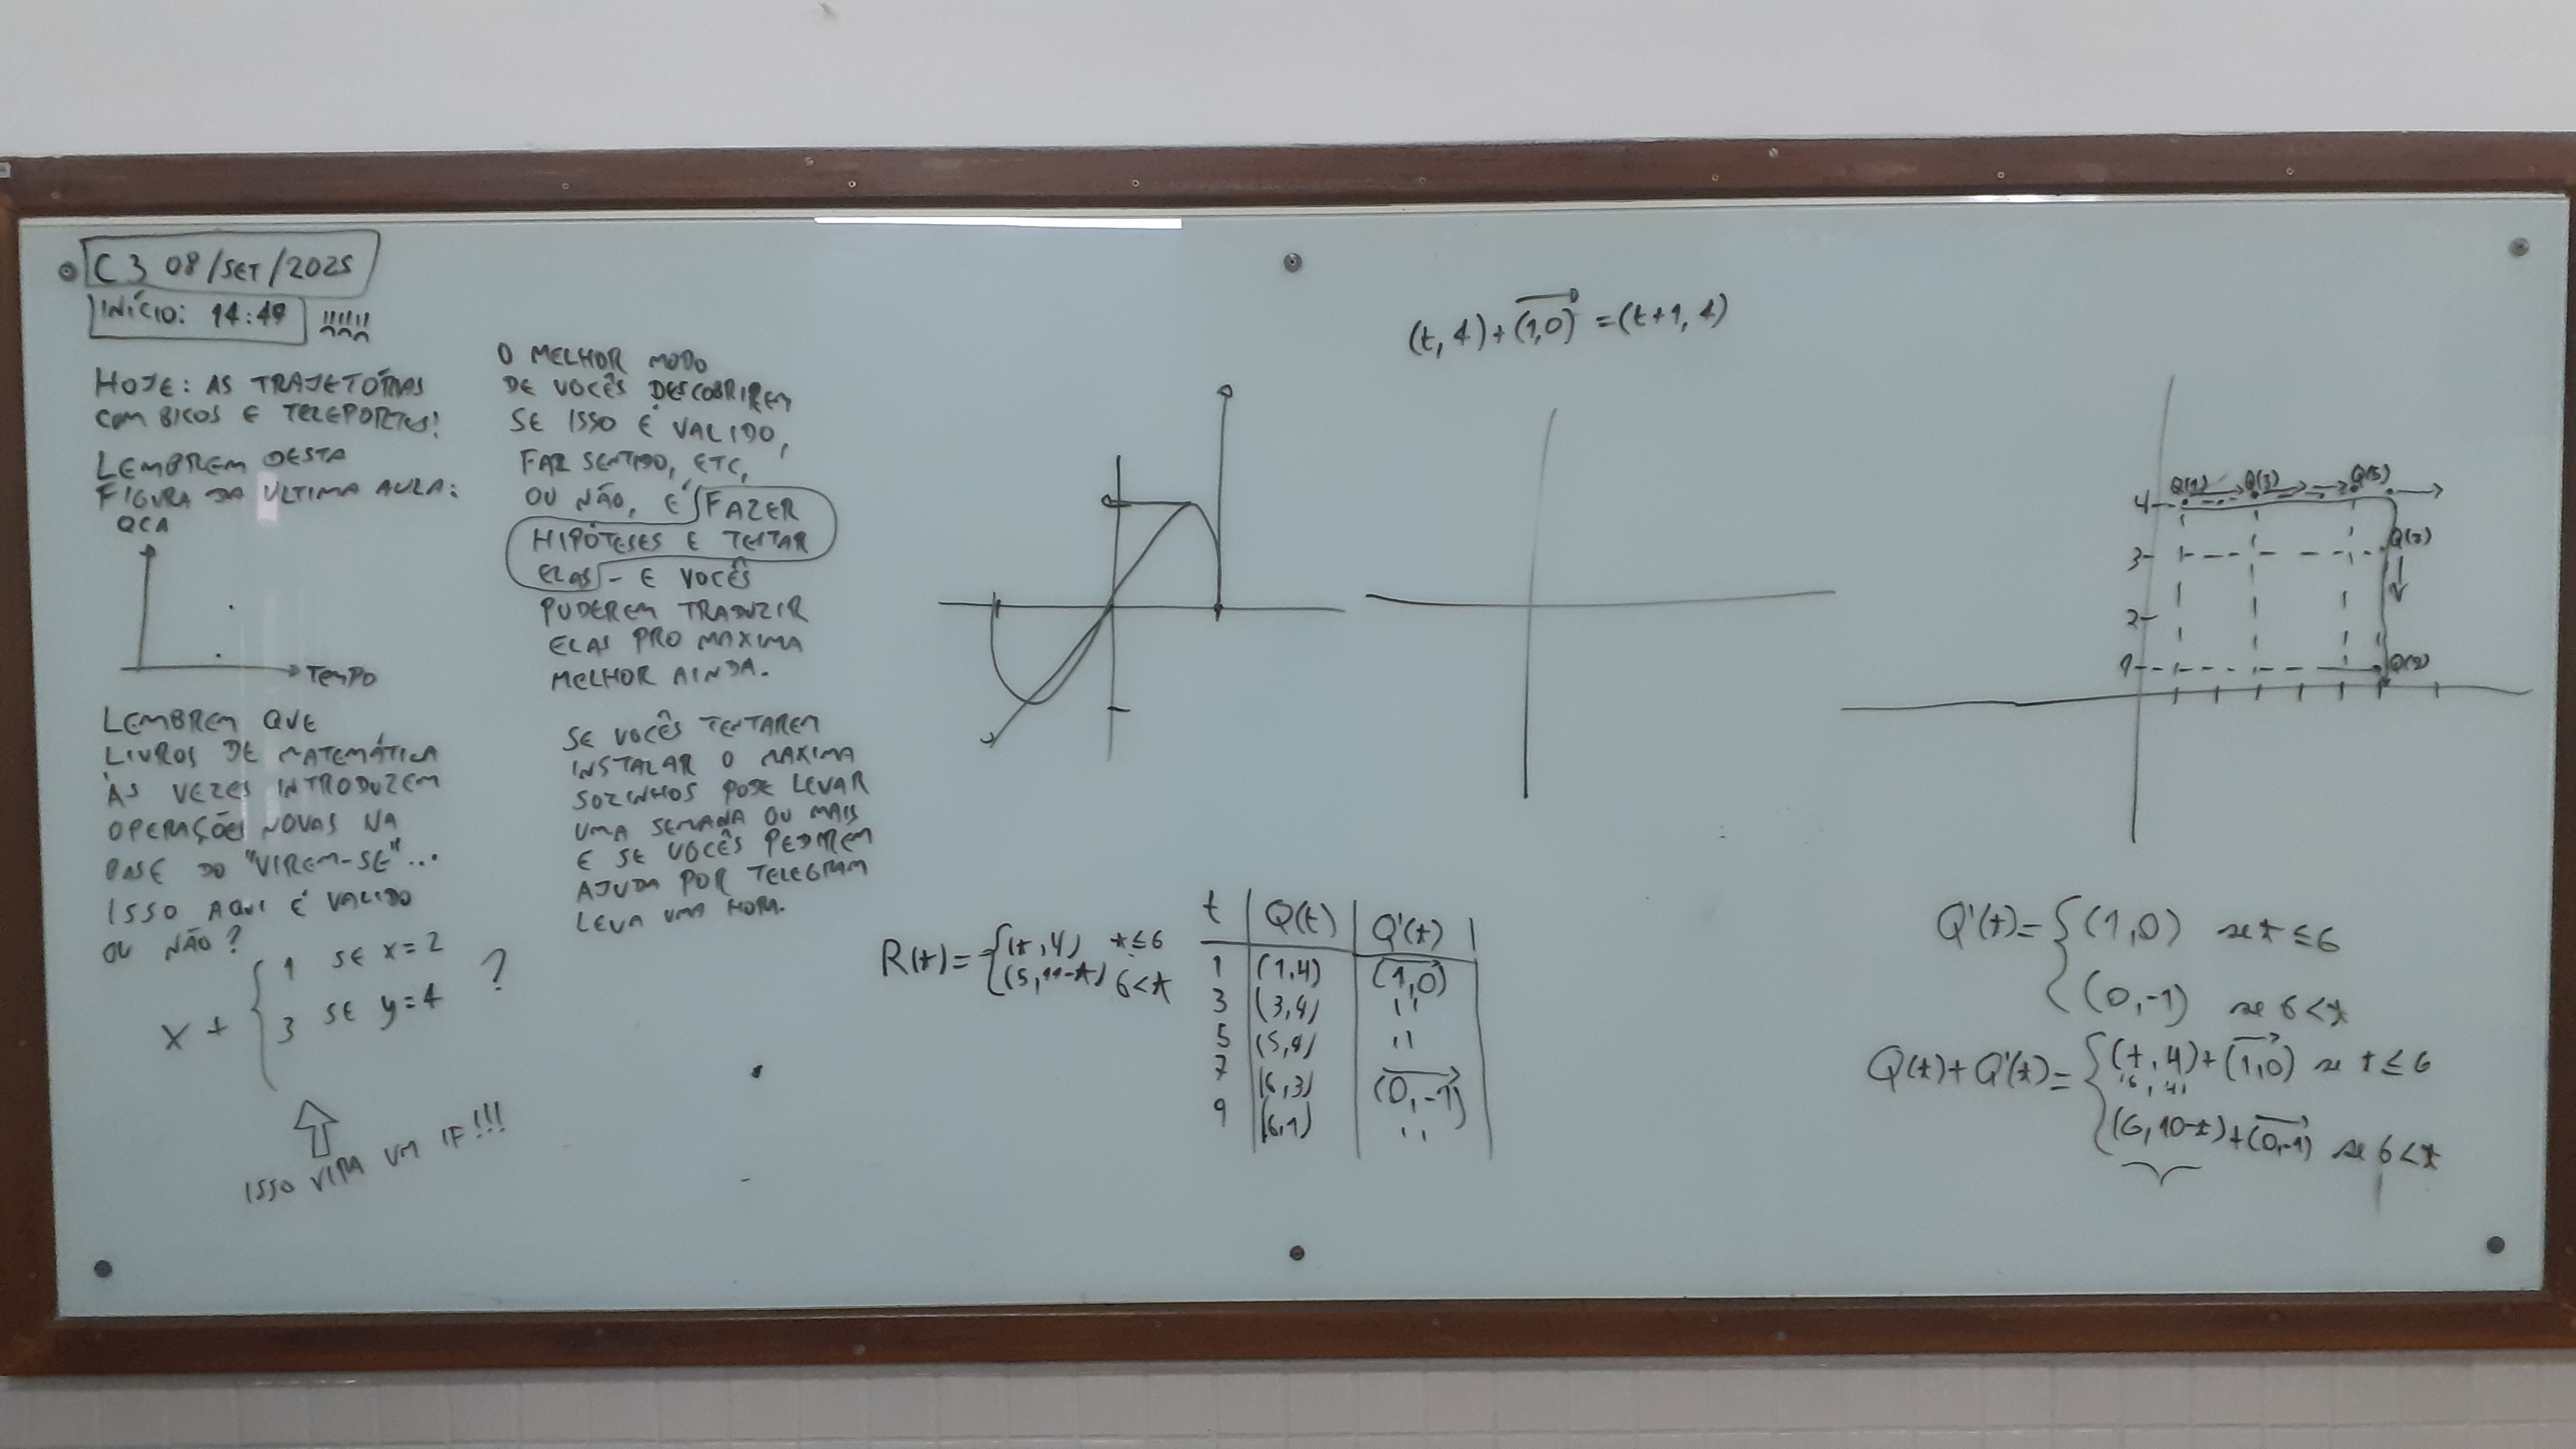 C3 08/SET/2025
INÍCIO: 14:49 !!!!!!
HOJE: AS TRAJETÓRIAS
COM BICOS E TELEPORTES!
LEMBREM DESTA
FIGURA DA ÚLTIMA AULA:
QCA
TEMPO
LEMBREM QUE
LIVROS DE MATEMÁTICA
ÀS VEZES INTRODUZEM
OPERAÇÕES NOVAS NA
BASE DO "VIREM-SE"...
ISSO AQUI É VALIDO
OU NÃO?
x + { 1 SE x=2
3 SE y=4 ?
ISSO VIRA UM IF!!!
O MELHOR MODO
DE VOCÊS DESCOBRIREM
SE ISSO É VALIDO,
FAZ SENTIDO, ETC,
OU NÃO, É FAZER
HIPÓTESES E TESTAR
ELAS - E VOCÊS
PUDEREM TRADUZIR
ELAS PRO MAXIMA
MELHOR AINDA.
SE VOCÊS TENTAREM
INSTALAR O MAXIMA
SOZINHOS PODE LEVAR
UMA SEMANA OU MAIS
E SE VOCÊS PEDIREM
AJUDA POR TELEGRAM
LEVA UMA HORA.
(t,4)+(1,0)=(t+1,4)
R(t)= { (t,4) t≤6
(5,11-t) 6<t
t Q(t) Q'(t)
1 (1,4) (1,0)
3 (3,4) ''
5 (5,4) ''
7 (6,3) (0,-1)
9 (6,1) ''
Q(1) Q(3) Q(5)
4
3 Q(7)
2
1 Q(9)
Q'(t)= { (1,0) se t≤6
(0,-1) se 6<t
Q(t)+Q'(t)= { (t,4)+(1,0) se t≤6
(6,10-t)+(0,-1) se 6<t